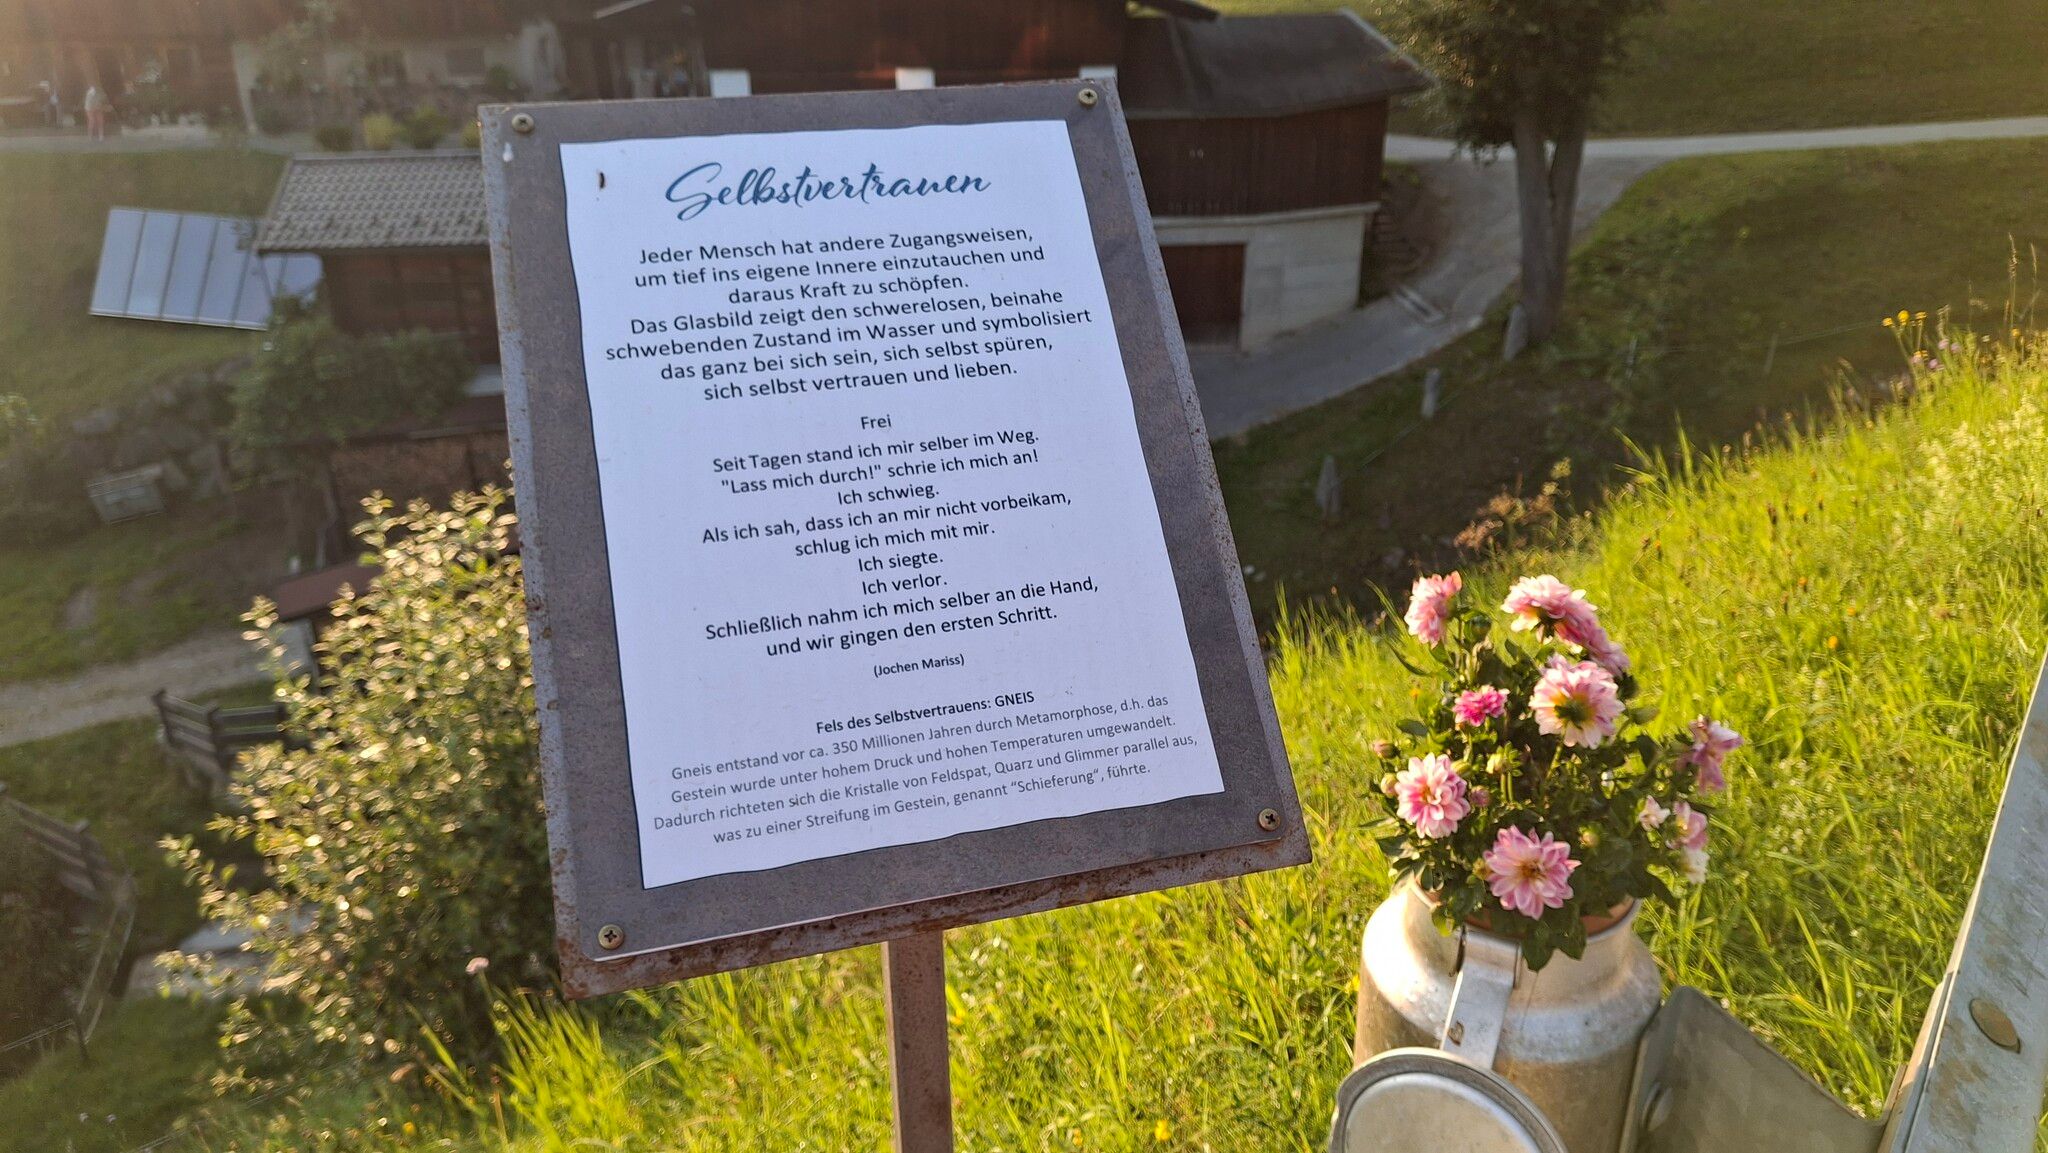 Selbstvertrauen
Jeder Mensch hat andere Zugangsweisen,
um tief ins eigene Innere einzutauchen und
daraus Kraft zu schöpfen.
Das Glasbild zeigt den schwerelosen, beinahe
schwebenden Zustand im Wasser und symbolisiert
das ganz bei sich sein, sich selbst spüren,
sich selbst vertrauen und lieben.
Frei
Seit Tagen stand ich mir selber im Weg.
"Lass mich durch!" schrie ich mich an!
Ich schwieg.
Als ich sah, dass ich an mir nicht vorbeikam,
schlug ich mich mit mir.
Ich siegte.
Ich verlor.
Schließlich nahm ich mich selber an die Hand,
und wir gingen den ersten Schritt.
(Jochen Mariss)
Fels des Selbstvertrauens: GNEIS
Gneis entstand vor ca. 350 Millionen Jahren durch Metamorphose, d.h. das
Gestein wurde unter hohem Druck und hohen Temperaturen umgewandelt.
Dadurch richteten sich die Kristalle von Feldspat, Quarz und Glimmer parallel aus,
was zu einer Streifung im Gestein, genannt “Schieferung“, führte.